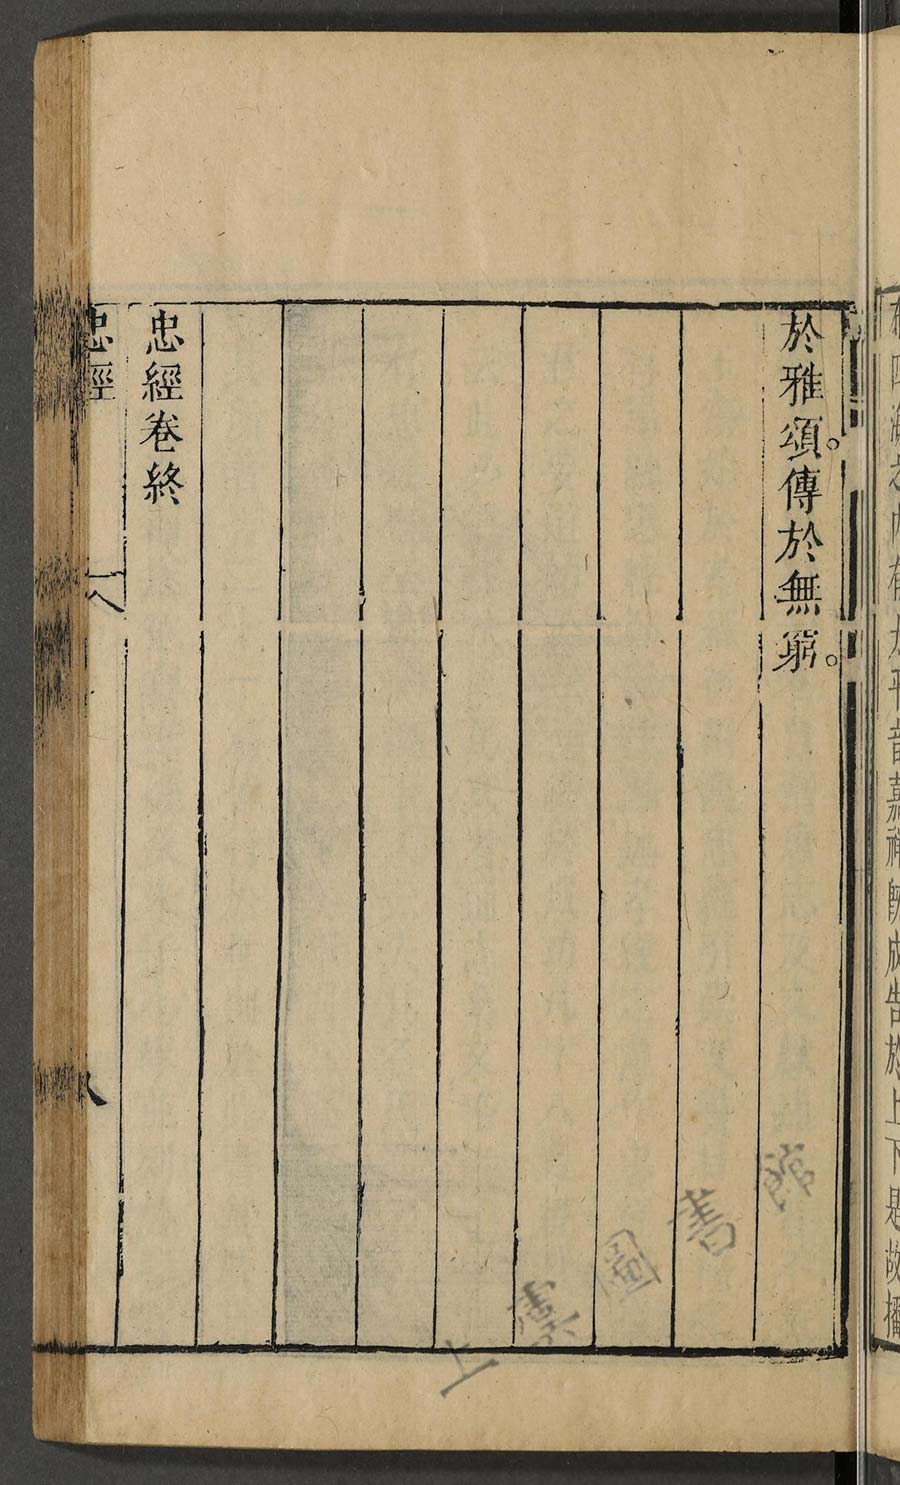 布四海之内有太平音嘉禎旣成告於上下是故播
於雅頌。傳於無窮。
忠經卷終
忠經
八
上虞圖書館